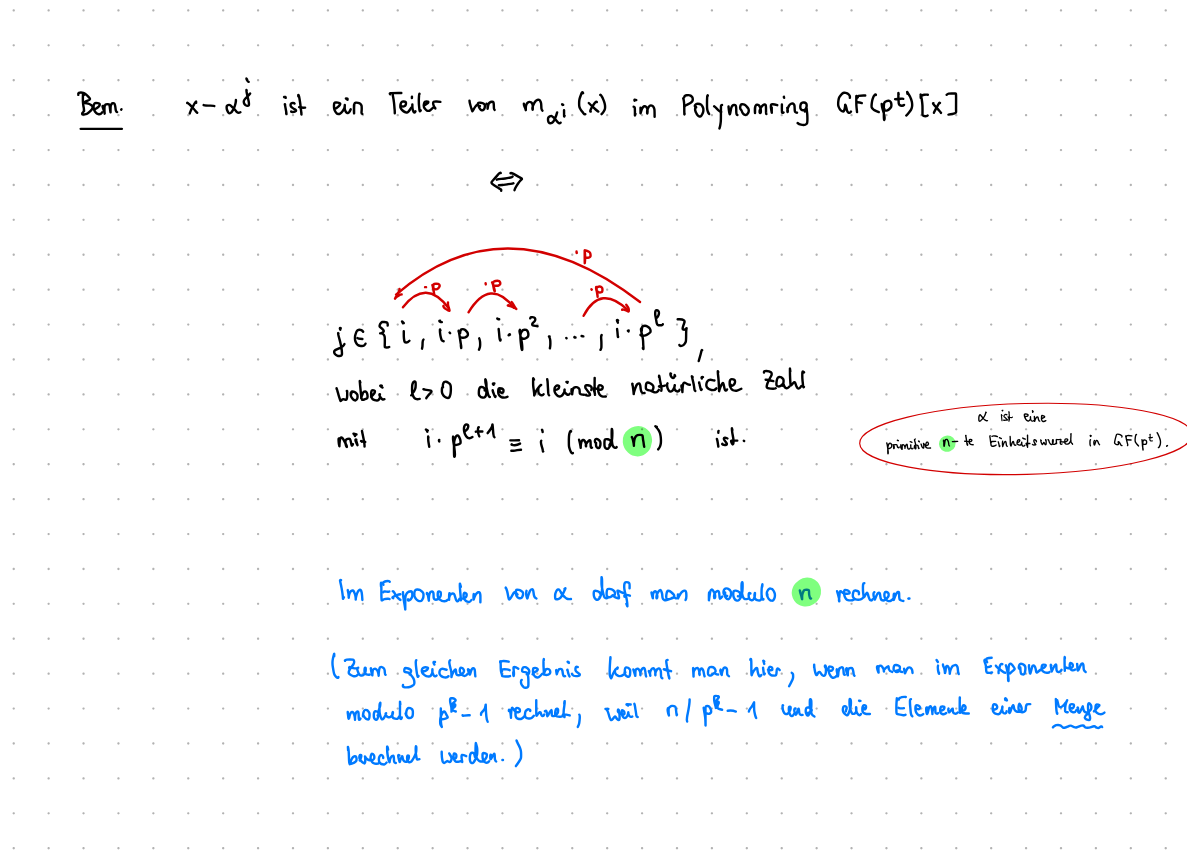 Bem. x - α^j ist ein Teiler von m_{α^i}(x) im Polynomring GF(p^t)[x]
⇔
·p
·p ·p ·p
j ∈ { i, i·p, i·p², ..., i·p^l },
wobei l > 0 die kleinste natürliche Zahl
mit i·p^{l+1} ≡ i (mod n) ist.
α ist eine
primitive n-te Einheitswurzel in GF(p^t).
Im Exponenten von α darf man modulo n rechnen.
(Zum gleichen Ergebnis kommt man hier, wenn man im Exponenten
modulo p^k - 1 rechnet, weil n / p^k - 1 und die Elemente einer Menge
berechnet werden.)